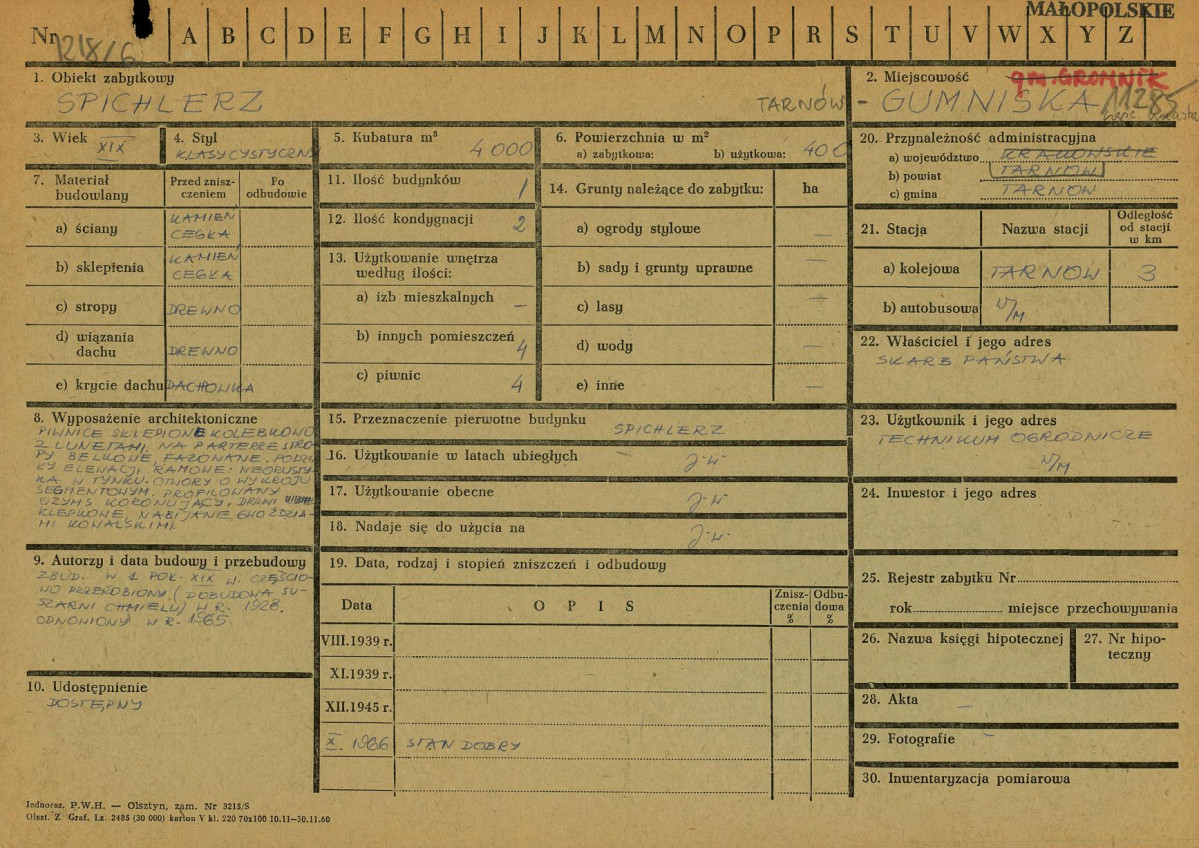 MAŁOPOLSKIE
Nr 1218/6 A B C D E F G H I J K L M N O P R S T U V W X Y Z
1. Obiekt zabytkowy
SPICHLERZ
2. Miejscowość gm. GROMNIK
TARNÓW - GUMNISKA 11285
3. Wiek XIX
4. Styl
KLASYCYSTYCZNY
5. Kubatura m³
4 000
6. Powierzchnia w m²
a) zabytkowa: b) użytkowa: 400
7. Materiał budowlany
Przed zniszczeniem
Po odbudowie
a) ściany KAMIEŃ CEGŁA
b) sklepienia KAMIEŃ CEGŁA
c) stropy DREWNO
d) wiązania dachu DREWNO
e) krycie dachu DACHÓWKA
8. Wyposażenie architektoniczne
PIWNICE SKLEPIONE KOLEBKOWO
Z LUNETAMI. NA PARTERZE STRO-
PY BELKOWE FAZOWANE. PODZIA-
ŁY ELEWACJI RAMOWE: NEORUSTY-
KA W TYNKU. OTWORY O WYKROJU
SEGMENTOWYM. PROFILOWANY
GZYMS KORONUJĄCY, DRZWI
KLEPKOWE, NABIJANE GWOŹDZIA-
MI KOWALSKIMI.
9. Autorzy i data budowy i przebudowy
ZBUD. W 1 POŁ. XIX W. CZĘŚCIO-
WO PRZEROBIONY (DOBUDOWA SU-
SZARNI CHMIELU) W R. 1928.
ODNOWIONY W R. 1965.
10. Udostępnienie
DOSTĘPNY
11. Ilość budynków 1
12. Ilość kondygnacji 2
13. Użytkowanie wnętrza według ilości:
a) izb mieszkalnych —
b) innych pomieszczeń 4
c) piwnic 4
14. Grunty należące do zabytku: ha
a) ogrody stylowe —
b) sady i grunty uprawne —
c) lasy —
d) wody —
e) inne —
15. Przeznaczenie pierwotne budynku SPICHLERZ
16. Użytkowanie w latach ubiegłych j.w.
17. Użytkowanie obecne j.w.
18. Nadaje się do użycia na j.w.
19. Data, rodzaj i stopień zniszczeń i odbudowy
Data OPIS Zniszczenia % Odbudowa %
VIII.1939 r.
XI.1939 r.
XII.1945 r.
X. 1966 STAN DOBRY
20. Przynależność administracyjna
a) województwo KRAKOWSKIE
b) powiat TARNÓW
c) gmina TARNÓW
21. Stacja Nazwa stacji Odległość od stacji w km
a) kolejowa TARNÓW 3
b) autobusowa W/M
22. Właściciel i jego adres
SKARB PAŃSTWA
23. Użytkownik i jego adres
TECHNIKUM OGRODNICZE
W/M
24. Inwestor i jego adres
25. Rejestr zabytku Nr
rok miejsce przechowywania
26. Nazwa księgi hipotecznej
27. Nr hipoteczny
28. Akta —
29. Fotografie
30. Inwentaryzacja pomiarowa
Jednoraz. P.W.H. — Olsztyn, zam. Nr 3215/S
Olszt. Z Graf. Lz. 2485 (30 000) karton V kl. 220 70x100 10.11—30.11.60